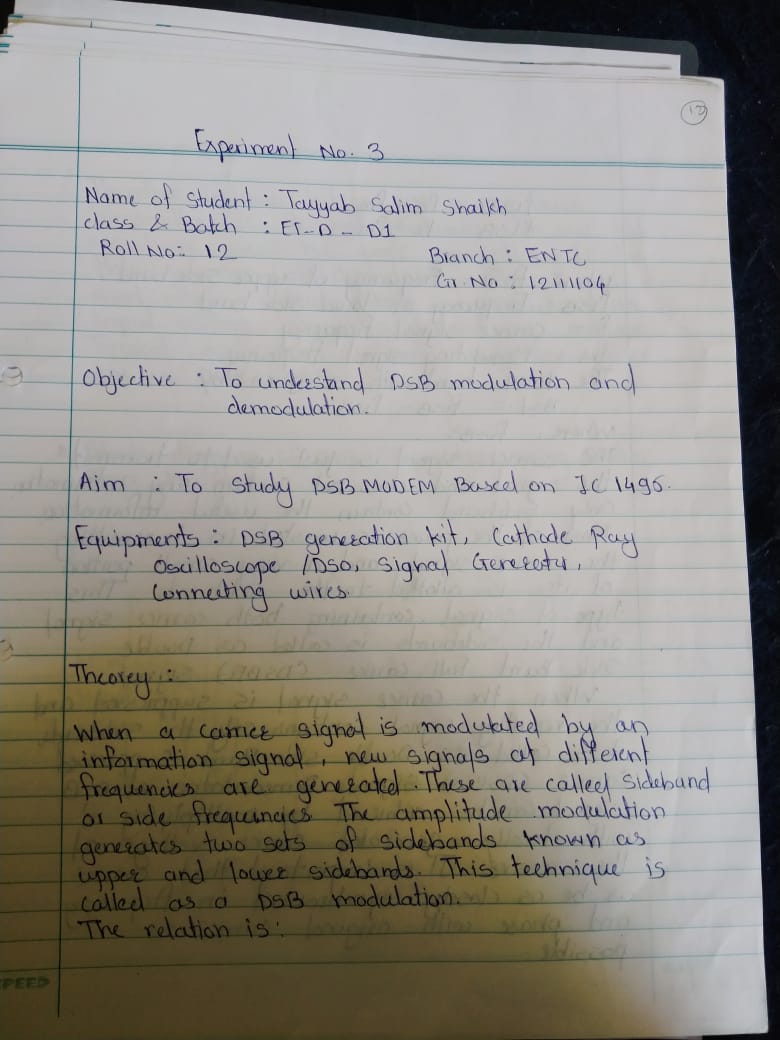 12
Experiment No. 3
Name of Student : Tayyab Salim Shaikh
class & Batch : ET-D - D1
Roll No: 12
Branch : ENTC
Gr. No : 12111104
Objective : To understand DSB modulation and
demodulation.
Aim : To Study DSB MODEM Based on IC 1496.
Equipments : DSB generation kit, Cathode Ray
Oscilloscope /DSO, Signal Generator,
Connecting wires.
Theorey :
When a carrier signal is modulated by an
information signal, new signals at different
frequencies are generated. These are called Sideband
or side frequencies The amplitude modulation
generates two sets of sidebands known as
upper and lower sidebands. This technique is
called as a DSB modulation.
The relation is:
SPEED